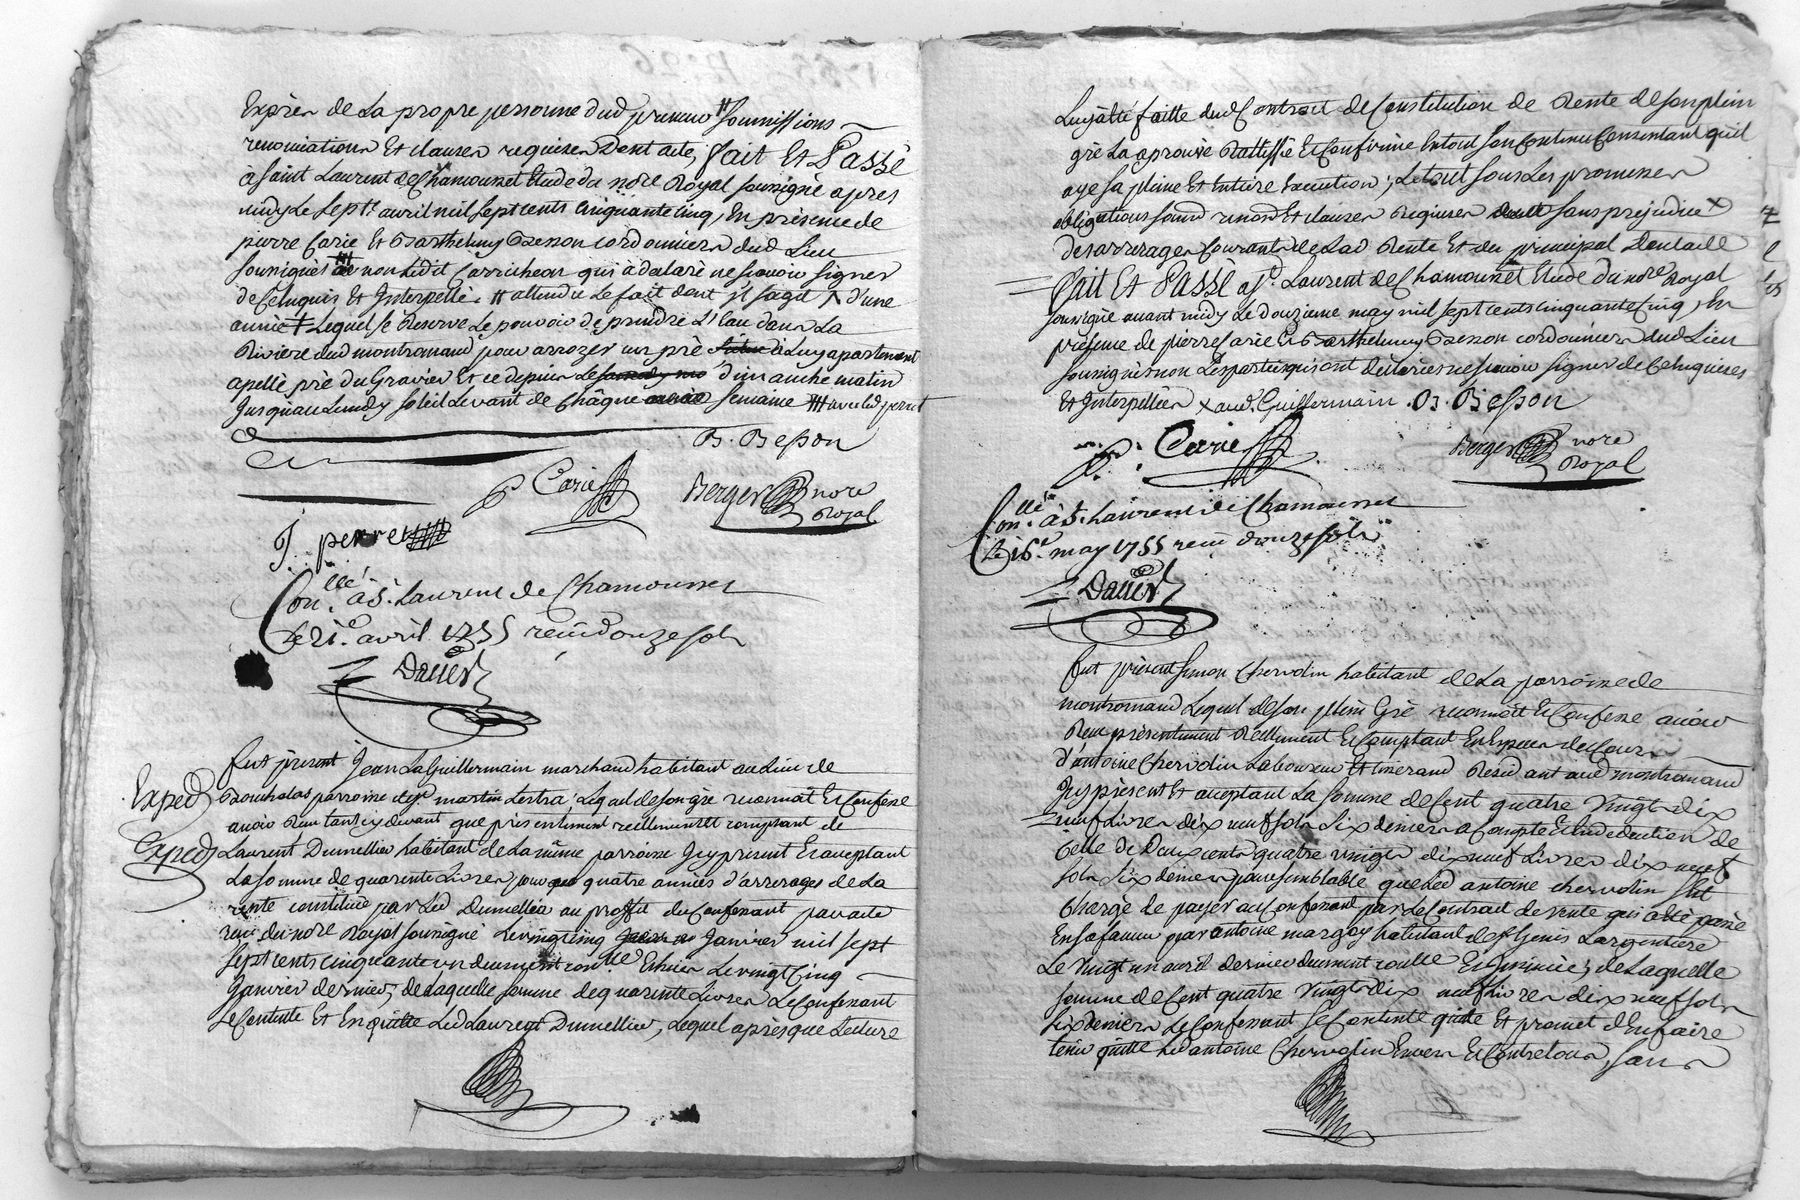 Exprès de La propre personne dud preneur # soumissions
renonciations Et clauses requises Dont acte, fait Et Passé
à saint Laurent de Chamousset Etude du nore Royal soussigné apres
midy Le sept avril mil sept cents cinquante cinq, En présence de
pierre Carie Et Barthelemy Besson cordonniers dud Lieu
soussignés non Ledit qui a déclaré ne sçavoir signer
de Ce Enquis Et Interpellé. # attendu Le fait dont il s'agit d'une
année Lequel se Reserve Le pouvoir de prendre L'Eau dans La
Riviere dud montromand pour arrozer un pré à Luy apartenant
apellé pré du Gravier Et ce depuis dimanche matin
Jusqu'au Lundy soleil Levant de Chaque semaine
B. Besson
P Carie
Berger nore
Royal
J. perret
Conllé à St. Laurent de Chamousset
Le 21e avril 1755 reçu douze sols
Daver
fut présent Jean La Guillermain marchand habitant au Lieu de
Exped
parroisse de St martin Lestra, Lequel de son gré reconnoit Et Confesse
avoir Reçu tant cy devant que présentement réellement Et comptant de
Exped
Laurent Dumellier habitant de La même parroisse Icy présent Et acceptant
La somme de quarente Livres pour quatre années d'arrerages de La
rente constituée par Led Dumellier au proffit du Confessant par acte
reçu du nore Royal soussigné Le vingt cinq Janvier mil sept
sept cents cinquante un duement conllé Le vingt cinq
Janvier dernier, de Laquelle somme de quarente Livres Le Confessant
se Contente Et En quitte Led Laurent Dumellier, Lequel après que Lecture
Luy a été faitte dud Contrat de Constitution de Rente de son plein
gré La aprouvé Rattiffié Et Confirmé En tout son Contenu Consentant qu'il
aye sa pleine Et Entiere Execution; Le tout sous Les promesses
obligations renon Et clauses Requises sans préjudice x
des arrerages Courants de Lad Rente Et du principal Dont acte
fait Et Passé a St. Laurent de Chamousset Etude du nore Royal
soussigné avant midy Le Douzieme may mil sept cents cinquante Cinq, En
présence de pierre Carie Et Barthelemy Besson cordonniers dud Lieu
soussignés non Les parties qui ont déclarées ne sçavoir signer de Ce Enquises
Et Interpellées x aud. Guillermain. B. Besson
P. Carie
Berger nore
Royal
Conllé à St. Laurent de Chamousset
Le 16e may 1755 reçu douze sols
Daver
fut présent Simon Chervolin habitant de La parroisse de
montromand Lequel de son plein Gré reconnoit Et Confesse avoir
Reçu présentement Réellement Et Comptant En Especes de Cours
d'antoine Chervolin Laboureur Et tisserand Resid ant aud montromand
Icy présent Et acceptant La somme de Cent quatre Vingt dix
neuf Livres dix neuf sols six deniers a Compte Et En deduction de
Celle de Deux cents quatre vingts dix neuf Livres dix neuf
sols six deniers que Led antoine chervolin fut
Chargé de payer au Confessant par Le Contrat de vente qui a été passé
En sa faveur par antoine margoy habitant de St Genis Largentiere
Le Vingt un avril dernier duement conllé Et Insinué; de Laquelle
somme de Cent quatre Vingt dix neuf Livres dix neuf sols
six deniers Le Confessant se Contente quitte Et promet d'En faire
tenir quitte Led antoine Chervolin Envers Et Contre tous, sans